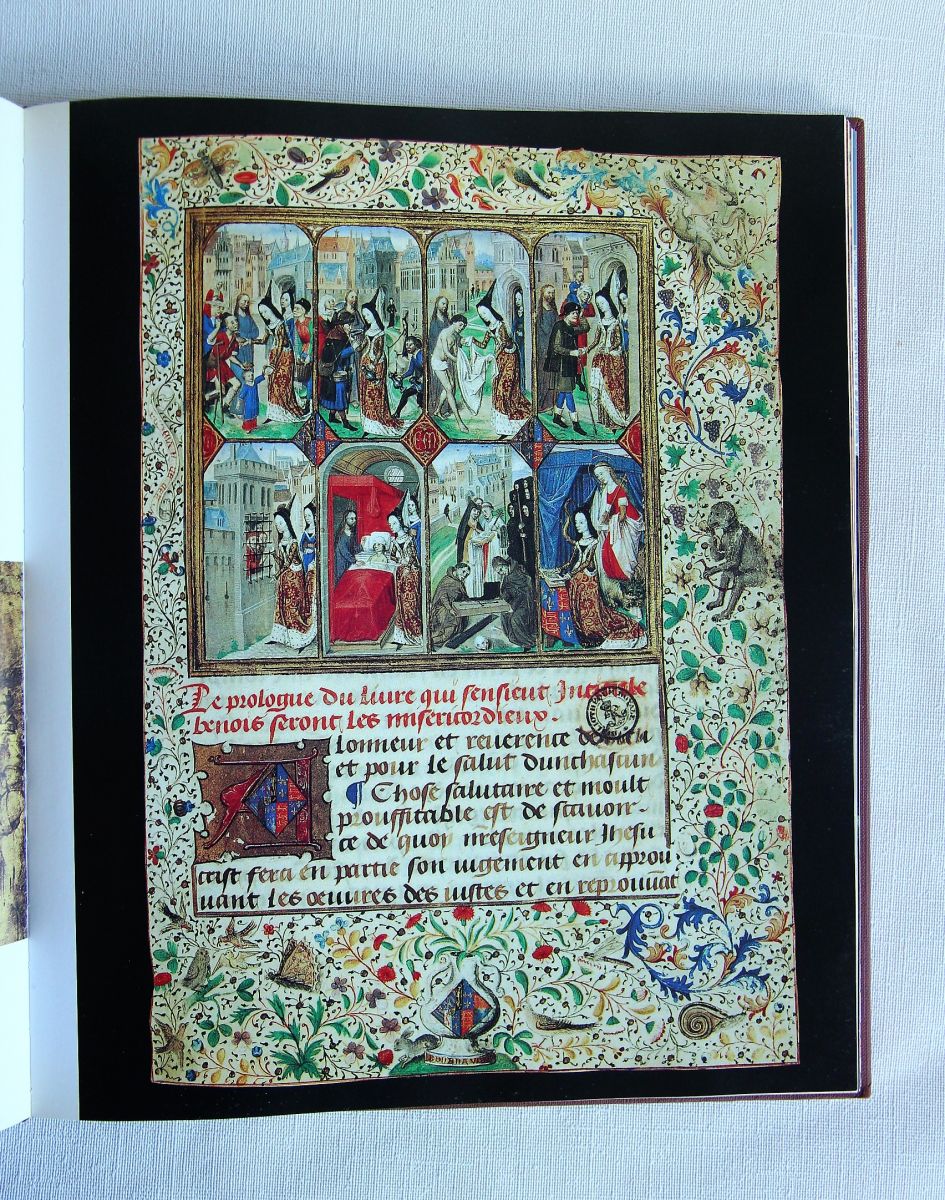 Le prologue du liure qui sensieut Intitule
benois seront les misericordieux.
A lonneur et reuerence de dieu
et pour le salut dunchascun
¶ Chose salutaire et moult
prouffitable est de scauoir
ce de quoy nr̃eseigneur Ihesu
crist fera en partie son iugement en approu
uant les oeuures des iustes et en reprouuāt